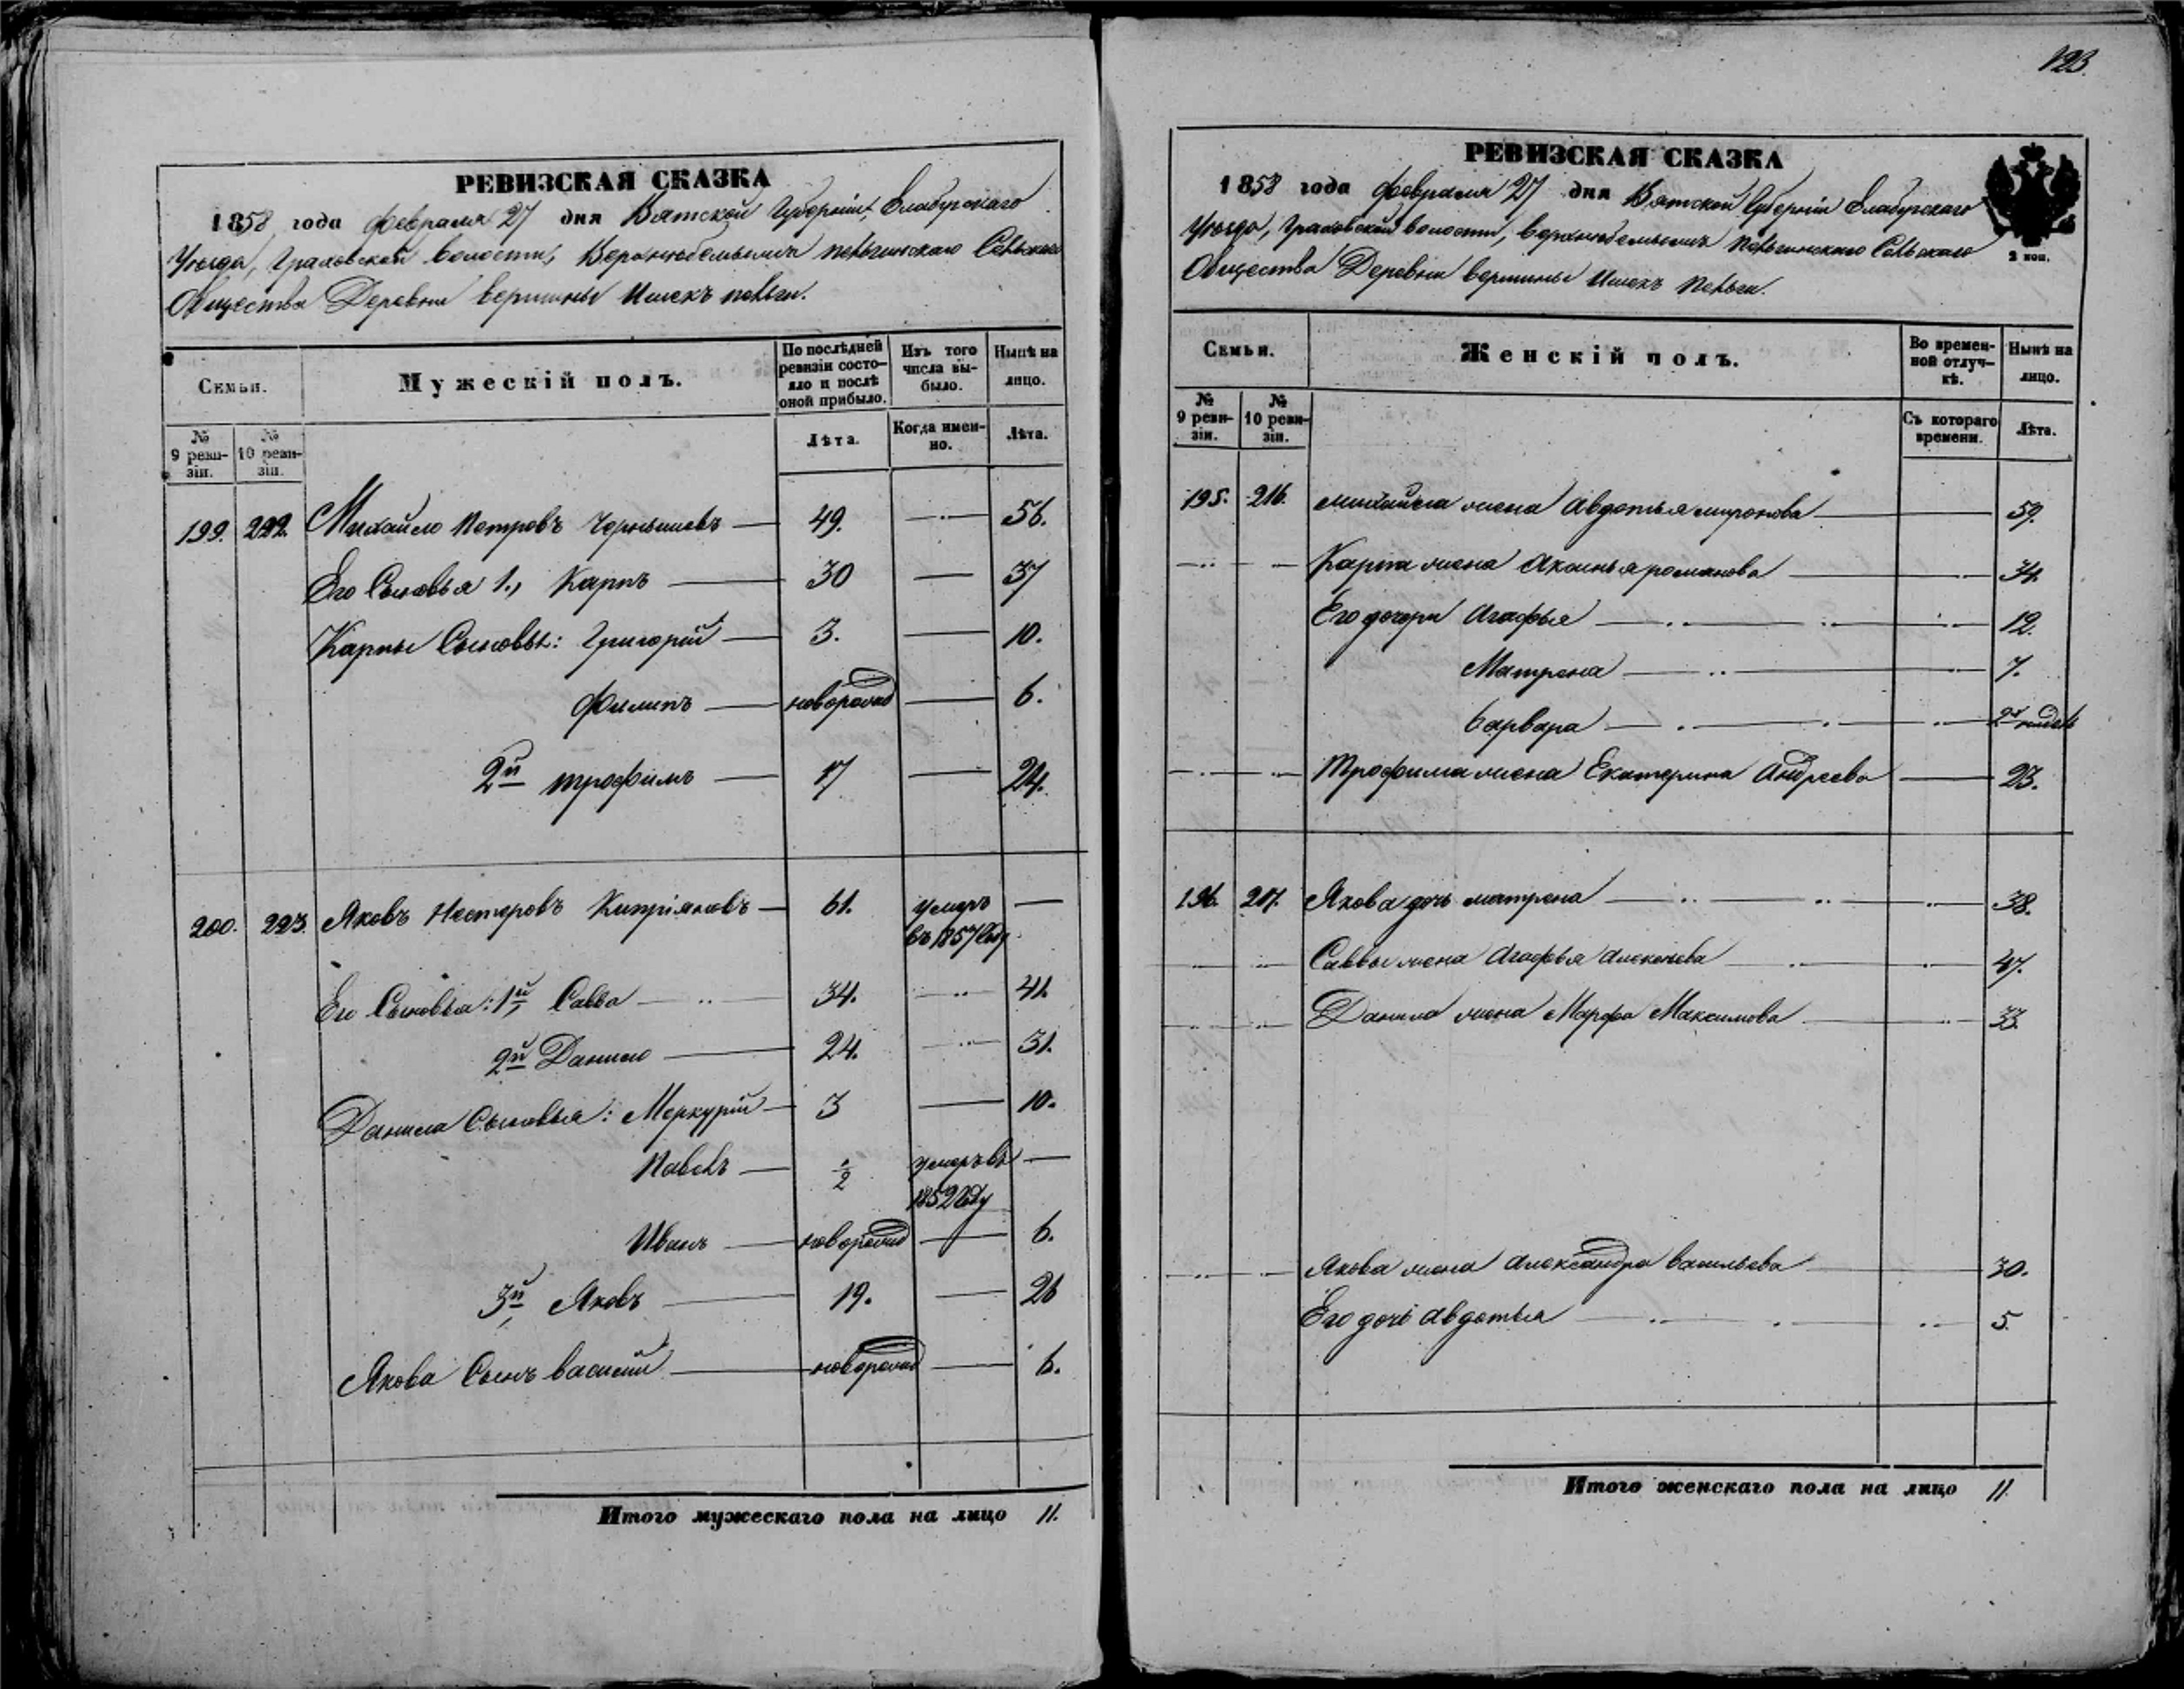 РЕВИЗСКАЯ СКАЗКА
1858 года февраля 27 дня Вятской Губерніи, Елабугскаго
Уѣзда, Граховской волости, Сельскаго
Общества Деревни вершины Ишекъ
Семьи.
Мужескій полъ.
По послѣдней ревизіи состояло и послѣ оной прибыло.
Изъ того числа выбыло.
Нынѣ на лицо.
№ 9 ревизіи.
№ 10 ревизіи.
Лѣта.
Когда именно.
Лѣта.
199. 222. Михайло Петровъ Чернышевъ — 49. — 56.
Его Сыновья 1., Карпъ — 30 — 37
Карпы Сыновья: Григорій — 3. — 10.
Филипъ — новорожд — 6.
2й Трофимъ — 17 — 24.
200. 223. Яковъ Нестеровъ Кипріяновъ — 61. умеръ въ 1857 году —
Его Сыновья: 1й, Савва — 34. — 41.
2й Данило — 24. — 31.
Данила Сыновья: Меркурій — 3 — 10.
Павелъ — ½ умеръ въ 1852 году —
Иванъ — новорожд — 6.
3й, Яковъ — 19. — 26
Якова Сынъ василий — новорожд — 6.
Итого мужескаго пола на лицо 11.
123.
РЕВИЗСКАЯ СКАЗКА
1858 года февраля 27 дня Вятской Губерніи Елабугскаго
Уѣзда, Граховской волости, Сельскаго
Общества Деревни вершины Ишекъ
2 коп.
Семьи.
Женскій полъ.
Во временной отлучкѣ.
Нынѣ на лицо.
№ 9 ревизіи.
№ 10 ревизіи.
Съ котораго времени.
Лѣта.
195. 216. михайла жена Авдотья миронова — 59.
Карпа жена Аксинья романова — 34.
Его дочери Агафья — 12.
Матрена — 7.
Варвара — 2х недель
Трофима жена Екатерина Андреева — 23.
196. 217. Якова дочь матрена — 38.
Саввы жена Агафья Алексеева — 47.
Данила жена Марфа Максимова — 33.
Якова жена Александра васильева — 30.
Его дочь Авдотья — 5.
Итого женскаго пола на лицо 11.